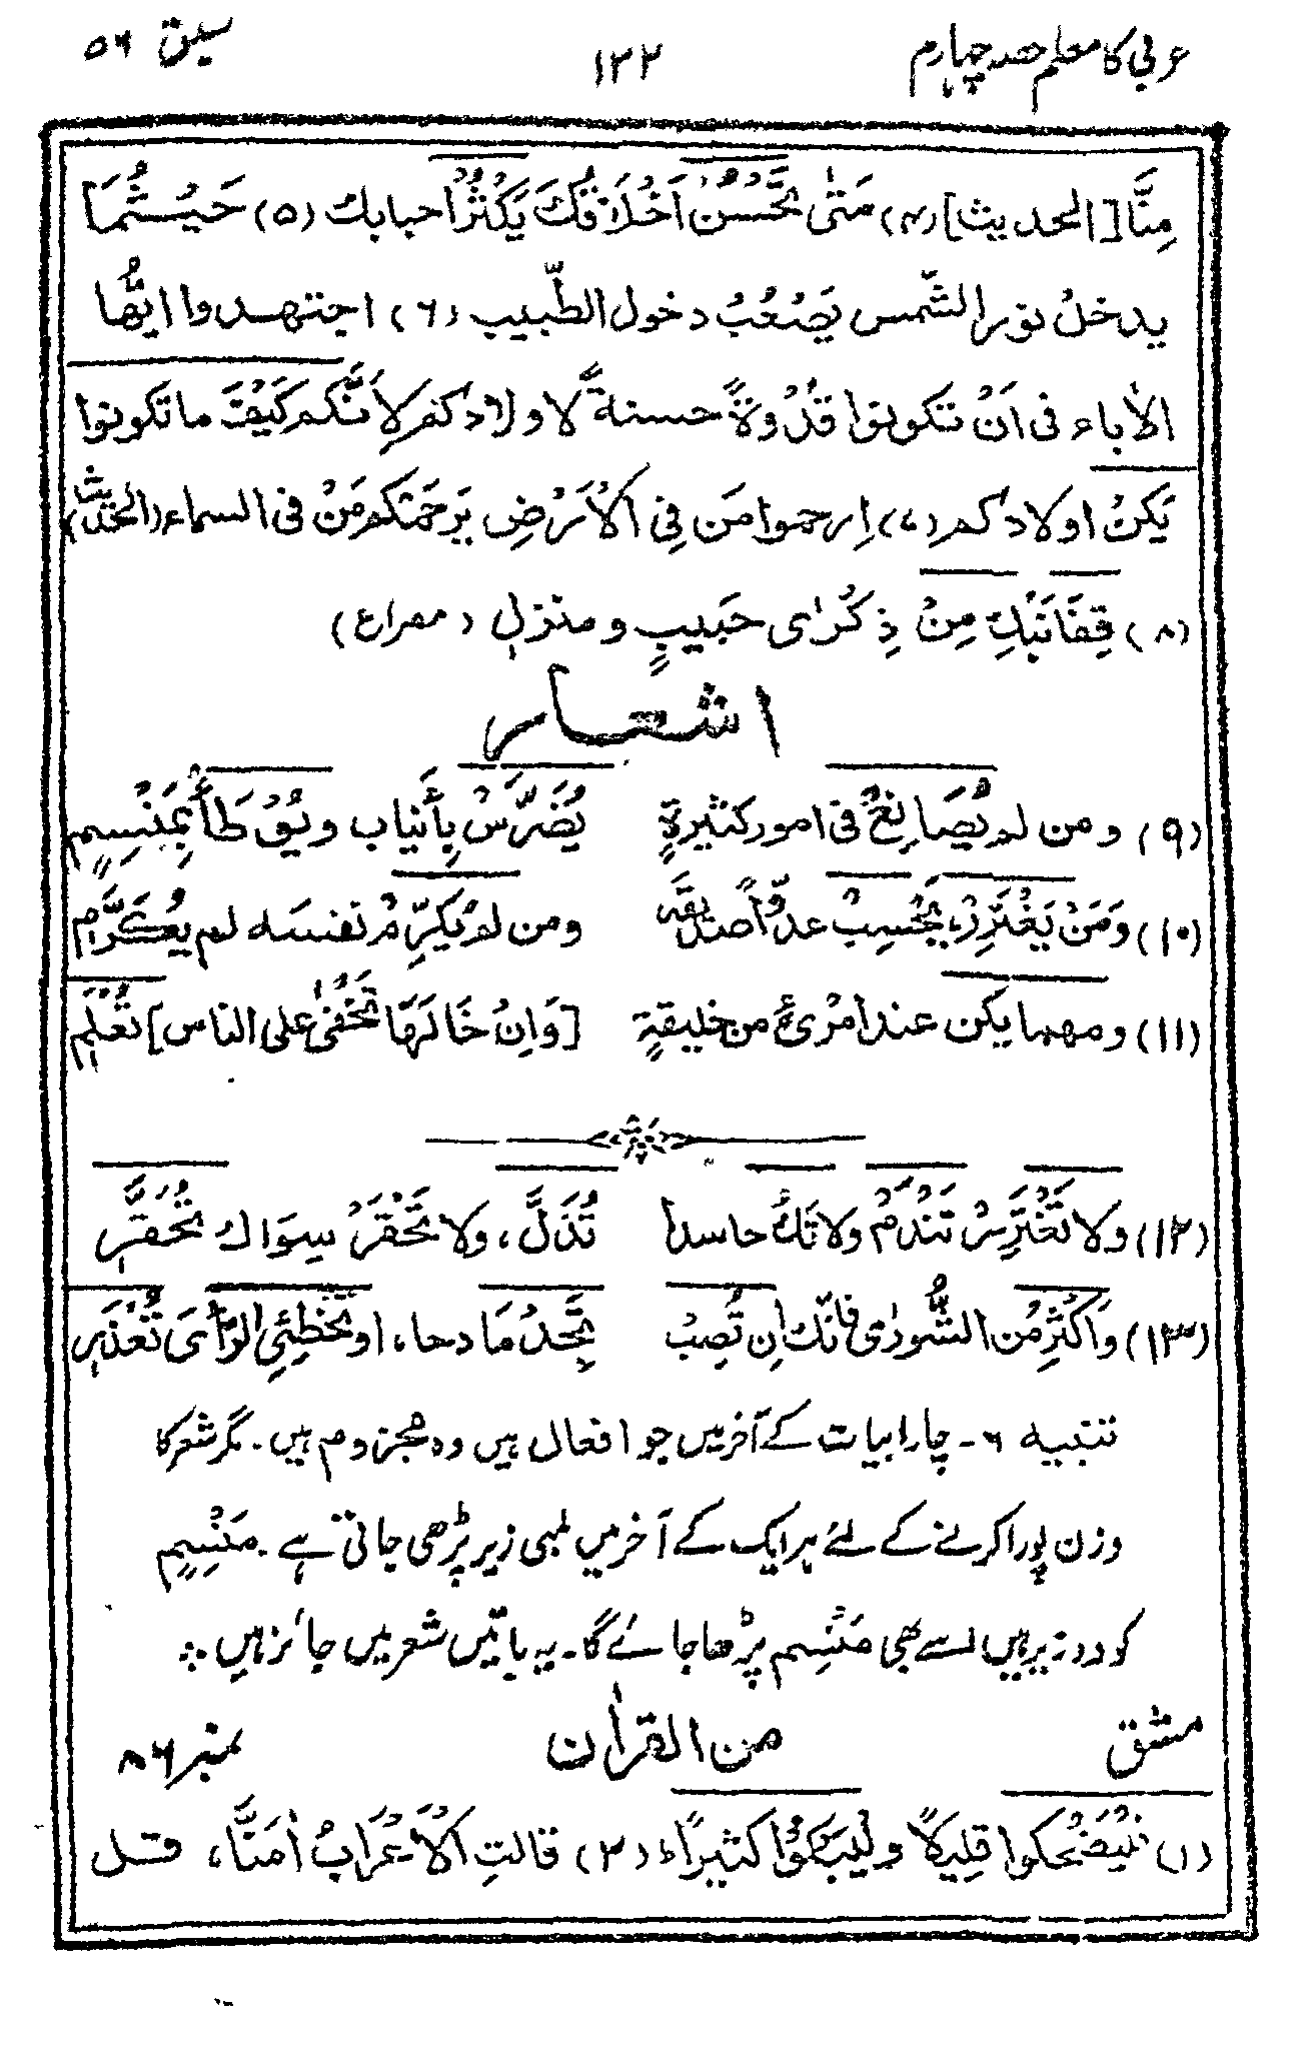 عربی کا معلم حصہ چہارم ۱۳۲ سبق ۵۶
مِنَّا [الحدیث] (۴) مَتٰی تَحْسُنْ اَخْلَاقُكَ یَكْثُرْ احبابك (۵) حَیْثُمَا
یدخلُ نورالشّمس یَصْعُبُ دخول الطّبیب (۶) اجتهدوا ایّها
الاٰباء فی اَنْ تکونوا قُدْوةً حسنةً لاولادکم لِاَنَّکم کَیْفَ ما تکونوا
یَکُنْ اولادکم (۷) اِرحموا مَن فِی الْاَرْضِ یَرحَمْکم مَنْ فی السماء (الحدیث)
(۸) قِفَا نَبْكِ مِنْ ذِکْرٰی حَبیبٍ و منزلِ (مصراع)
اشعار
(۹) ومن لم یُصَانِعْ فی امور کثیرةٍ یُضَرَّسْ بِأَنیاب ویُوْطَأْ بِمَنْسِمٍ
(۱۰) وَمَنْ یَغْتَرِبْ یَحْسِبْ عدوًّا صدیقَه ومن لم یُکَرِّمْ نفسَه لم یُکَرَّمِ
(۱۱) ومهما یکن عند امْرِئٍ من خلیقةٍ [وَاِنْ خَالَهَا تَخْفٰی علی الناس] تُعْلَمِ
(۱۲) ولا تَغْتَرِرْ تَنْدَمْ ولا تَكُ حاسداً تُذَلَّ، ولا تَحْقَرْ سِوَاك تُحَقَّرِ
(۱۳) وَاَکْثِرْ مُن الشُّورٰی فانّك اِن تُصِبْ تَجِدْ مَادحا، او تُخطِئِ الرَّاْیَ تُعْذَرِ
تنبیہ ۶ ۔ چار ابیات کے آخر میں جو افعال ہیں وہ مجزوم ہیں۔ مگر شعر کا
وزن پورا کرنے کے لئے ہر ایک کے آخر میں لمبی زیر پڑھی جاتی ہے۔ مَنْسِمٍ
کو دو زیر ہیں اسے بھی مَنْسِمِ پڑھا جائے گا۔ یہ باتیں شعر میں جائز ہیں
مشق من القراٰن نمبر ۸۶
(۱) فَلْیَضْحَکوا قلِیلًا ولْیَبْکُوْا کثیرًا، (۲) قالتِ الْاَعْرَابُ اٰمَنَّا، قل